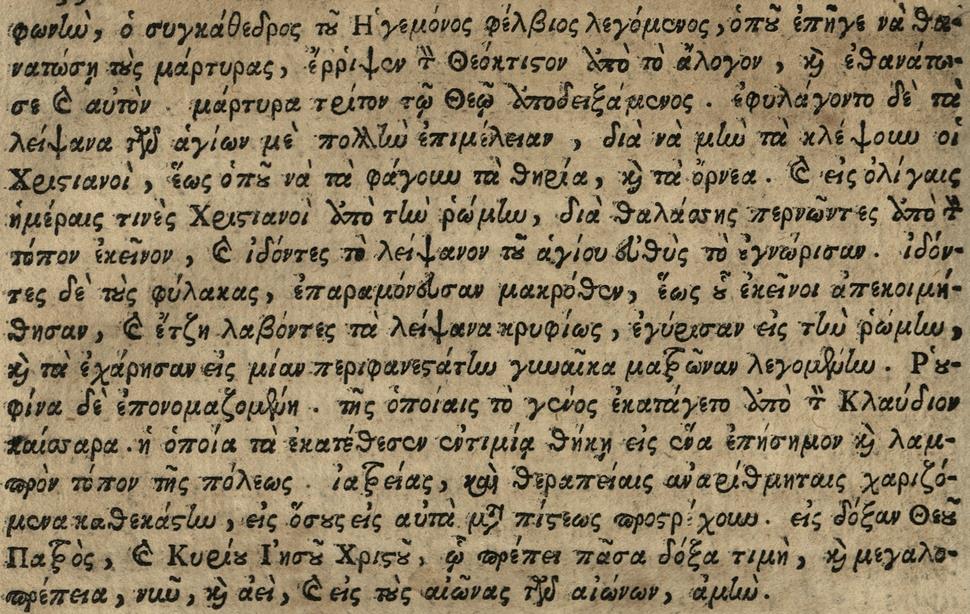 φωνὴν, ὁ συγκάθεδρος τοῦ Ἡγεμόνος φέλβιος λεγόμενος, ὁποῦ ἐπῆγε νὰ θα-
νατώσῃ τοὺς μάρτυρας, ἔρριψεν τὸν Θεόκτιστον ἀπὸ τὸ ἄλογον, καὶ ἐθανάτω-
σε καὶ αὐτὸν. μάρτυρα τρίτον τῷ Θεῷ ὑποδειξάμενος. ἐφυλάγοντο δὲ τὰ
λείψανα τῶν ἁγίων μὲ πολλὴν ἐπιμέλειαν, διὰ νὰ μὴν τὰ κλέψουν οἱ
Χριστιανοὶ, ἕως ὁποῦ νὰ τὰ φάγουν τὰ θηρία, καὶ τὰ ὄρνεα. καὶ εἰς ὀλίγαις
ἡμέραις τινὲς Χριστιανοὶ ἀπὸ τὴν ῥώμην, διὰ θαλάσσης περνῶντες ἀπὸ τὸν
τόπον ἐκεῖνον, καὶ ἰδόντες τὸ λείψανον τοῦ ἁγίου εὐθὺς τὸ ἐγνώρισαν. ἰδόν-
τες δὲ τοὺς φύλακας, ἐπαραμόνευσαν μακρόθεν, ἕως οὗ ἐκεῖνοι ἀπεκοιμή-
θησαν, καὶ ἔτζη λαβόντες τὰ λείψανα κρυφίως, ἐγύρισαν εἰς τὴν ῥώμην,
καὶ τὰ ἐχάρησαν εἰς μίαν περιφανεστάτην γυναῖκα ματρῶναν λεγομένην. Ῥου-
φίνα δὲ ἐπονομαζομένη. τῆς ὁποίαις τὸ γένος ἐκατάγετο ἀπὸ τὸν Κλαύδιον
καίσσαρα. ἡ ὁποία τὰ ἐκατέθεσεν ἐντιμία θήκη εἰς ἕνα ἐπήσημον καὶ λαμ-
πρὸν τόπον τῆς πόλεως. ἰατρείας, καὶ θεραπείαις ἀναρίθμηταις χαριζό-
μενα καθεκάστην, εἰς ὅσους εἰς αὐτὰ μετὰ πίστεως προστρέχουν. εἰς δόξαν Θεοῦ
Πατρὸς, καὶ Κυρίου Ἰησοῦ Χριστοῦ, ᾧ πρέπει πᾶσα δόξα τιμὴ, καὶ μεγαλο-
πρέπεια, νῦν, καὶ ἀεὶ, καὶ εἰς τοὺς αἰῶνας τῶν αἰώνων, ἀμήν.